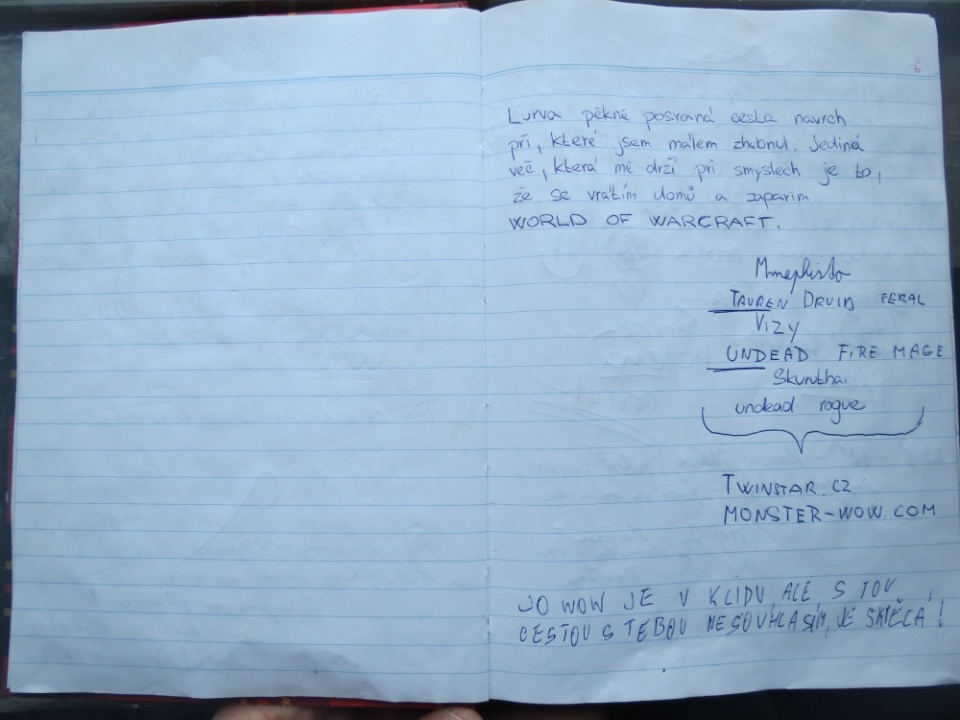 6
Kurva pěkně posraná cesta navrch
při, které jsem málem zhebnul. Jediná
več, která mě drží při smyslech je to,
že se vrátím domů a zapařim
WORLD OF WARCRAFT.
Mmephisto
TAUREN DRUID FERAL
VIZY
UNDEAD FIRE MAGE
undead rogue
TWINSTAR.CZ
MONSTER-WOW.COM
JO WOW JE V KLIDU, ALE S TOU
CESTOU S TEBOU NESOUHLASÍM, JE